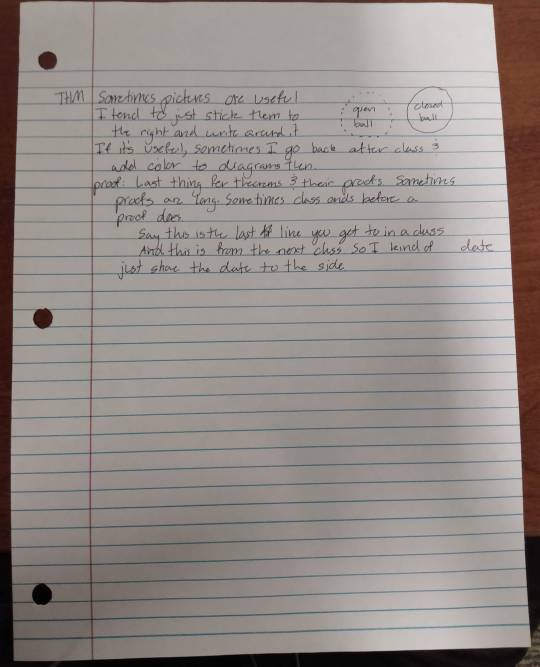 THM Sometimes pictures are useful
I tend to just stick them to
the right and write around it
open ball
closed ball
If it's useful, sometimes I go back after class &
add color to diagrams then.
proof: Last thing for theorems & their proofs. Sometimes
proofs are long. Sometimes class ends before a
proof does.
Say this is the last line you got to in a class
And this is from the next class so I kind of date
just shove the date to the side